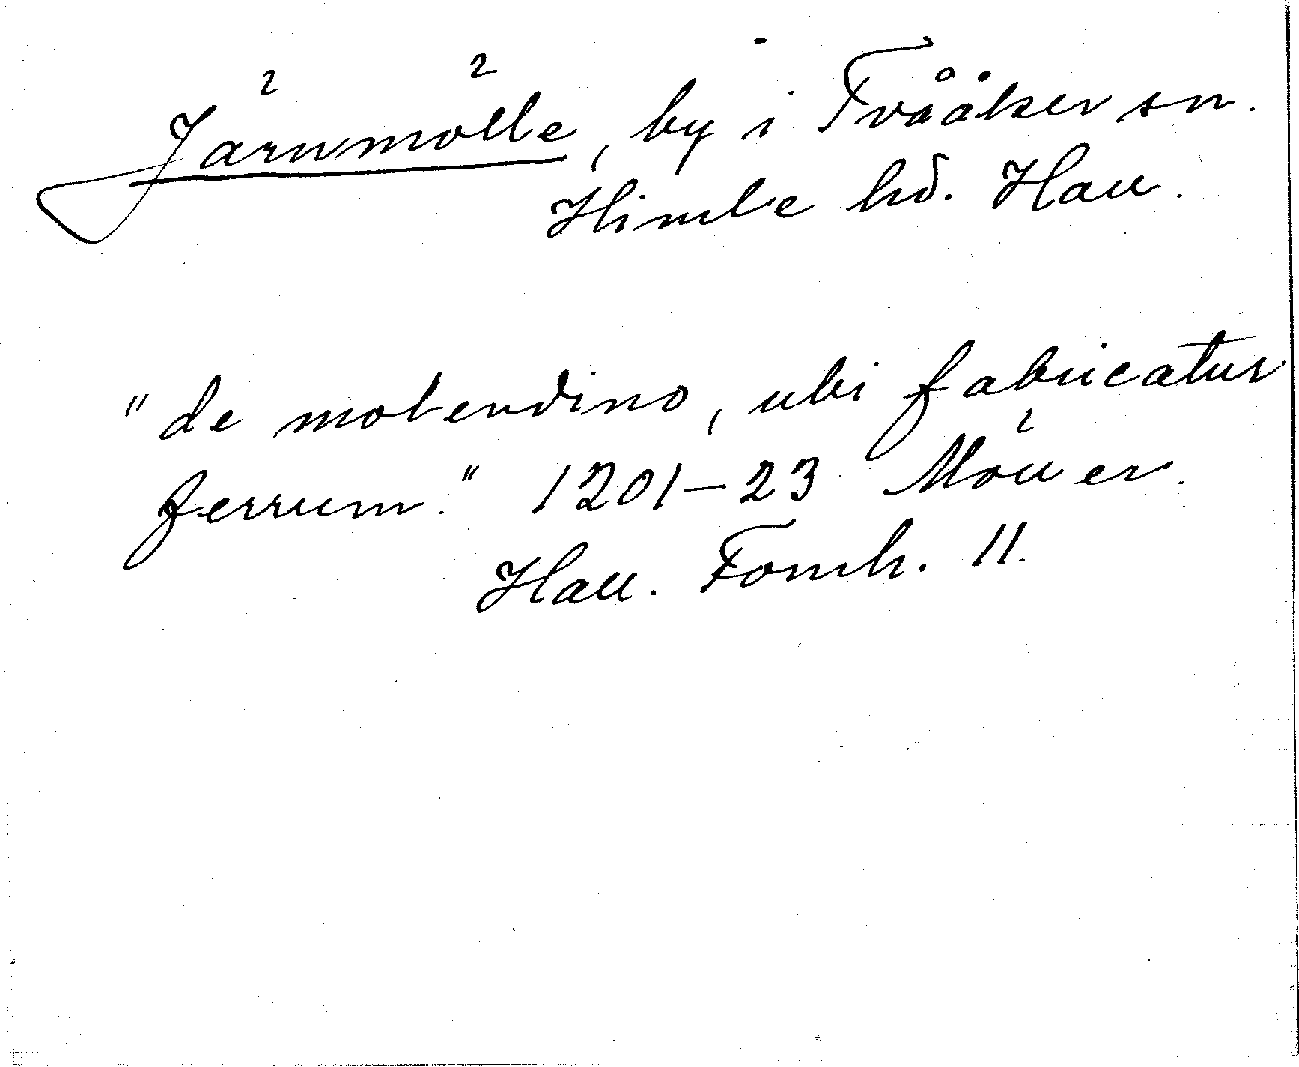 Järnmölle, by i Tvååker sn.
Himle hd. Hall.
"de molendino, ubi fabricatur
ferrum." 1201-23 Möller.
Hall. Fornh. II.